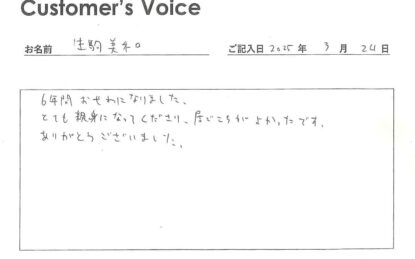 Customer's Voice
お名前 生駒美和 ご記入日 2025 年 3 月 24 日
6年間 おせわになりました。
とても 親身になってくださり、居ごこちが よかったです。
ありがとうございました。